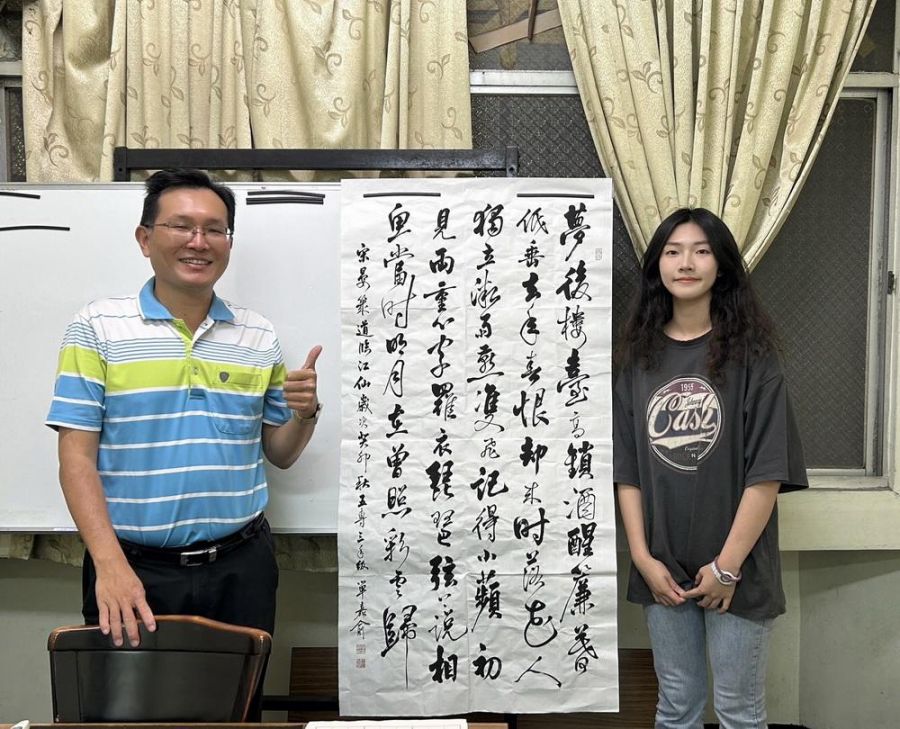 夢後樓臺高鎖酒醒簾幕
低垂去年春恨却来时落花人
獨立微雨燕雙飛記得小蘋初
見兩重心字羅衣琵琶弦上說相
思當时明月在曾照彩雲歸
宋晏幾道臨江仙歲次癸卯秋五專三年級 單嘉俞
1955
Johnny
Cash